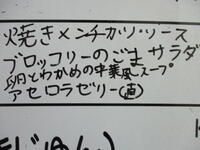 焼きメンチカツ・ソース
ブロッコリーのごまサラダ
卵とわかめの中華風スープ
アセロラゼリー(直)